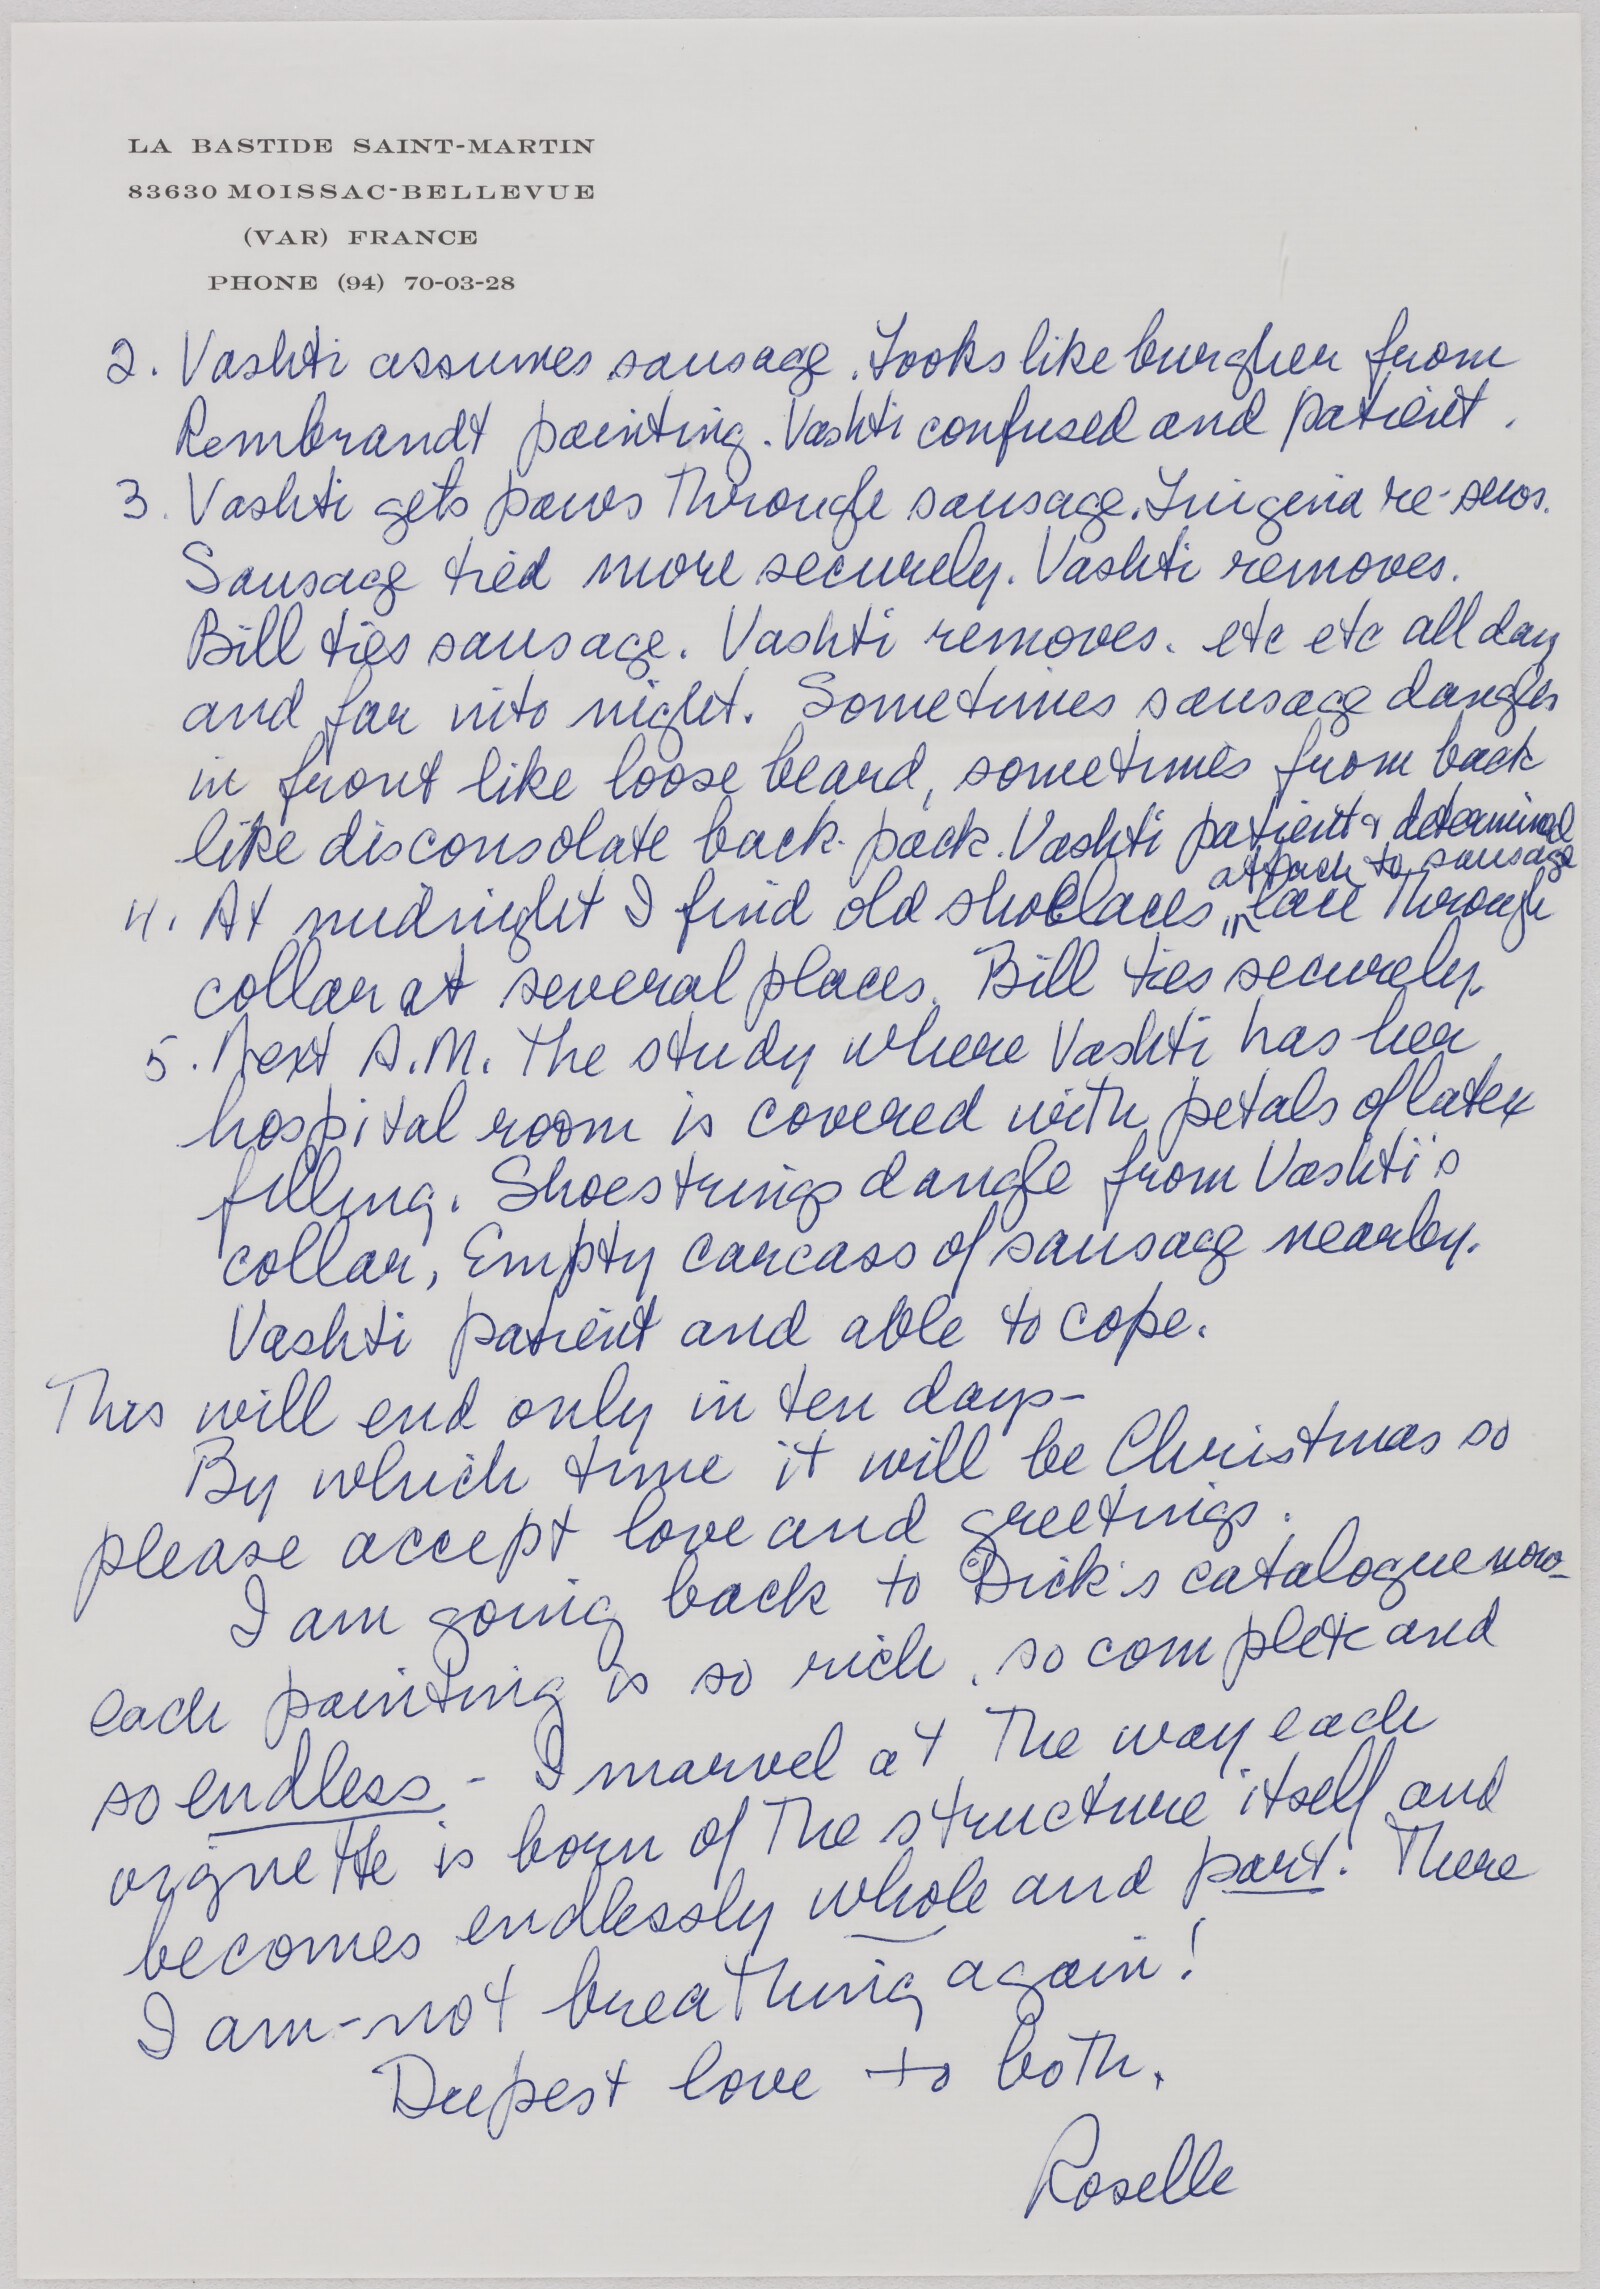 LA BASTIDE SAINT-MARTIN
83630 MOISSAC-BELLEVUE
(VAR) FRANCE
PHONE (94) 70-03-28
2. Vashti assumes sausage. Looks like burgher from
Rembrandt painting. Vashti confused and patient.
3. Vashti gets paws through sausage. Luigina re-sews.
Sausage tied more securely. Vashti removes.
Bill ties sausage. Vashti removes. etc etc all day
and far into night. Sometimes sausage dangles
in front like loose beard, sometimes from back
like disconsolate back-pack. Vashti patient & determined
attach to sausage
4. At midnight I find old shoelaces, lace through
collar at several places. Bill ties securely.
5. Next A.M. The study where Vashti has her
hospital room is covered with petals of latex
filling. Shoestrings dangle from Vashti's
collar, Empty carcass of sausage nearby.
Vashti patient and able to cope.
This will end only in ten days-
By which time it will be Christmas so
please accept love and greetings.
I am going back to Dick's catalogue now-
each painting is so rich, so complete and
so endless - I marvel at the way each
vignette is born of the structure itself and
becomes endlessly whole and part. There
I am-not breathing again!
Deepest love to both,
Roselle